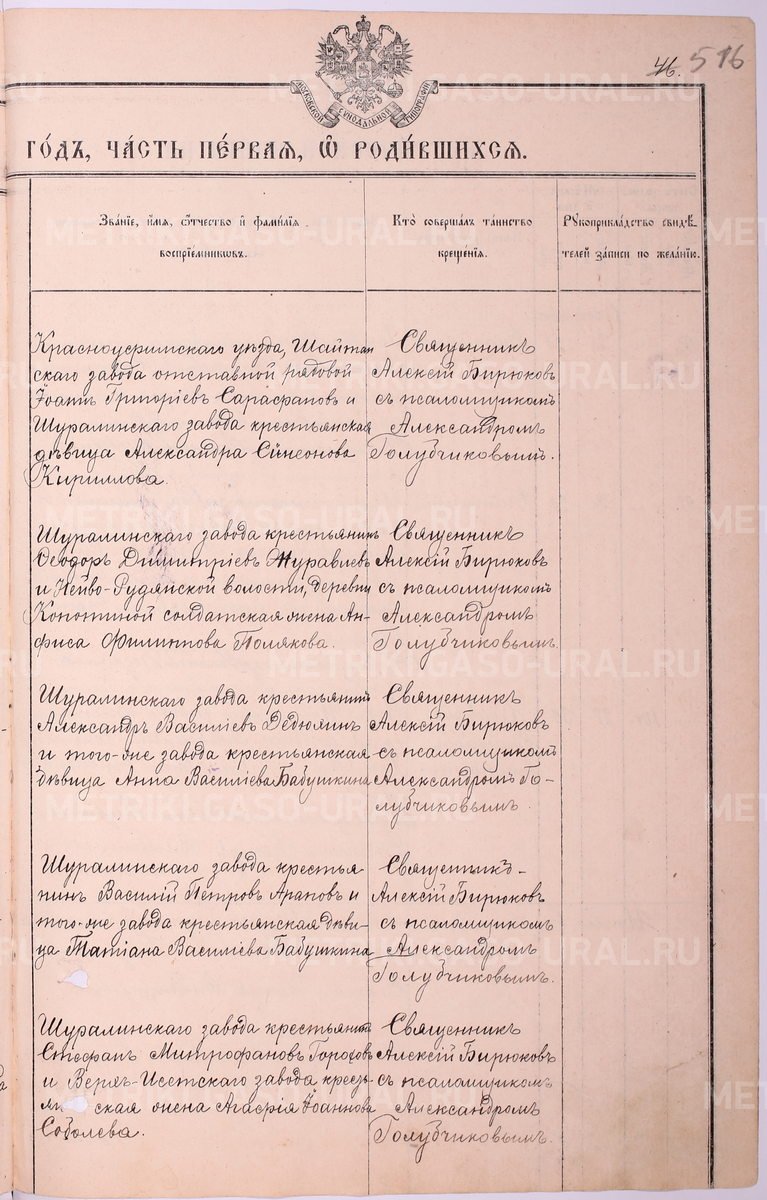 46. 516
МОСКОВСКОЙ СѴНОДАЛЬНОЙ ТИПОГРАФІИ
ГО́ДЪ, ЧА́СТЬ ПЕ́РВАЯ, Ѽ РОДИ́ВШИХСЯ.
Зва́нїе, и҆́мя, ѻ҆́тчество и҆ фами́лїя
воспрїе́мникѡвъ.
Кто̀ соверша́лъ та́инство
креще́нїя.
Рꙋкоприкла́дство свидѣ́-
телей за́писи по жела́нїю.
Красноуфимскаго уѣзда, Шайтан
скаго завода отставной рядовой
Іоаннъ Григоріевъ Сарафановъ и
Шуралинскаго завода крестьянская
дѣвица Александра Сѵмеонова
Кириллова.
Священникъ
Алексій Бирюковъ
съ псаломщикомъ
Александромъ
Голубчиковымъ.
Шуралинскаго завода крестьянинъ
Ѳеодоръ Димитріевъ Журавлевъ
и Нейво-Рудянской волости, деревни
Копотиной солдатская жена Ан-
фиса Филиппова Полякова.
Священникъ
Алексій Бирюковъ
съ псаломщикомъ
Александромъ
Голубчиковымъ.
Шуралинскаго завода крестьянинъ
Александръ Василіевъ Дедюлинъ
и того-же завода крестьянская
дѣвица Анна Василіева Бабушкина
Священникъ
Алексій Бирюковъ
съ псаломщикомъ
Александромъ Го-
лубчиковымъ.
Шуралинскаго завода крестья-
нинъ Василій Петровъ Араповъ и
того-же завода крестьянская дѣви-
ца Татіана Василіева Бабушкина
Священникъ
Алексій Бирюковъ
съ псаломщикомъ
Александромъ
Голубчиковымъ.
Шуралинскаго завода крестьянинъ
Стефанъ Митрофановъ Гороховъ
и Верхъ-Исетскаго завода кресть-
ян ская жена Агафія Іоаннова
Соболева.
Священникъ
Алексій Бирюковъ
съ псаломщикомъ
Александромъ
Голубчиковымъ.
METRIKI.GASO-URAL.RU